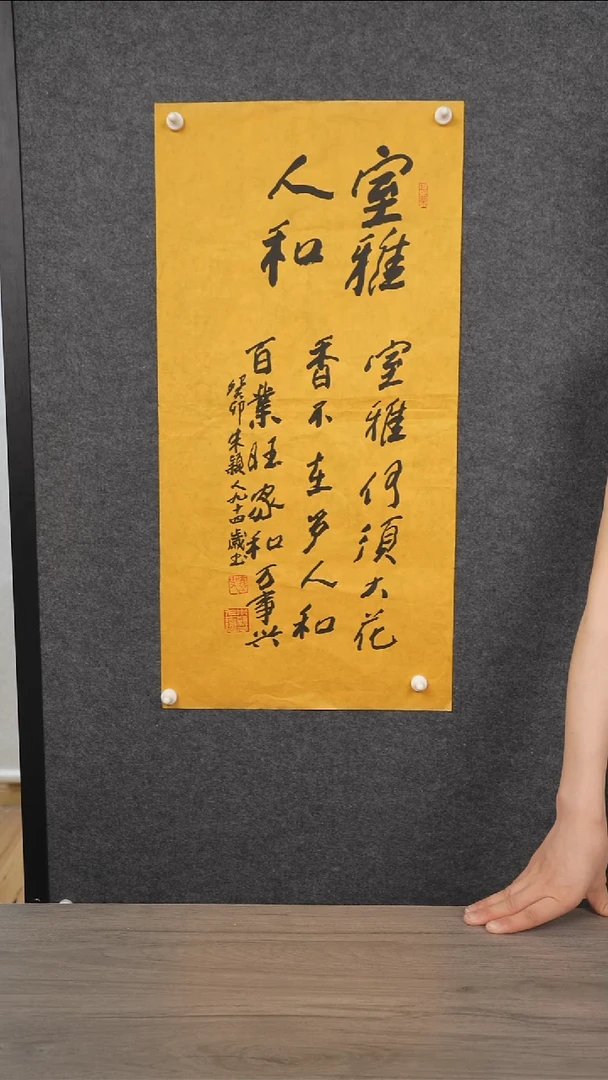 室雅
人和
室雅何須大花
香不在多人和
百業旺家和万事兴
癸卯朱穎人九十四歲书